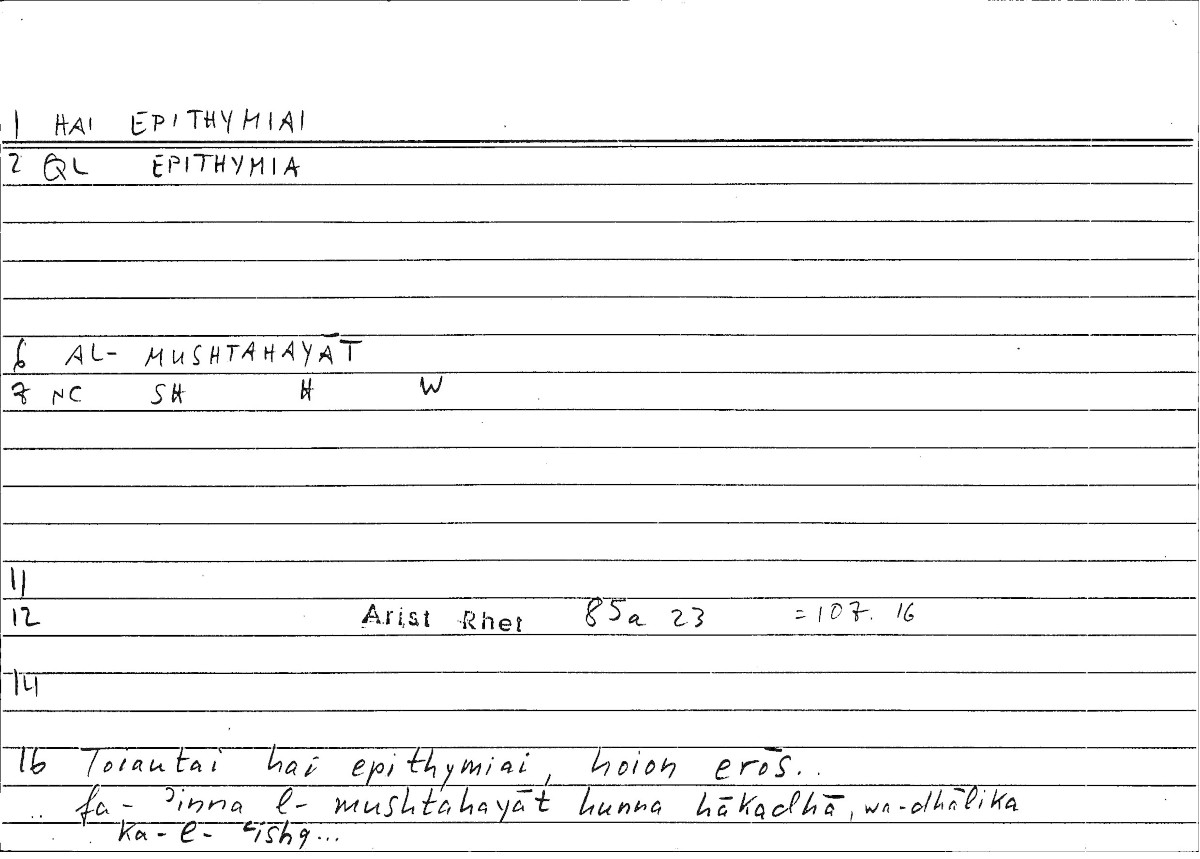 1 HAI EPITHYMIAI
2 QL EPITHYMIA
6 AL- MUSHTAHAYĀT
7 NC SH H W
11
12 Arist Rhet 85a 23 = 107. 16
14
16 Toiautai hai epithymiai, hoion erōs..
.. fa- ʾinna l- mushtahayāt hunna hākadhā, wa-dhālika
ka-l- ʿishq...